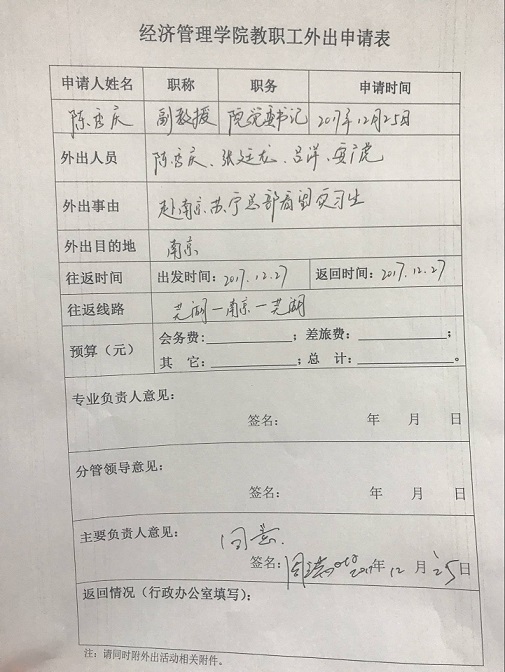 经济管理学院教职工外出申请表
申请人姓名 职称 职务 申请时间
陈秀庆 副教授 院党委书记 2017年12月25日
外出人员 陈秀庆、张廷龙、吕洋、安广虎
外出事由 赴南京苏宁总部看望实习生
外出目的地 南京
往返时间 出发时间:2017.12.27 返回时间:2017.12.27
往返线路 芜湖—南京—芜湖
预算（元） 会务费: ; 差旅费: ;
其 它: ; 总 计: 。
专业负责人意见:
签名: 年 月 日
分管领导意见:
签名: 年 月 日
主要负责人意见: 同意.
签名: 2017年12月25日
返回情况（行政办公室填写）:
注: 请同时附外出活动相关附件。